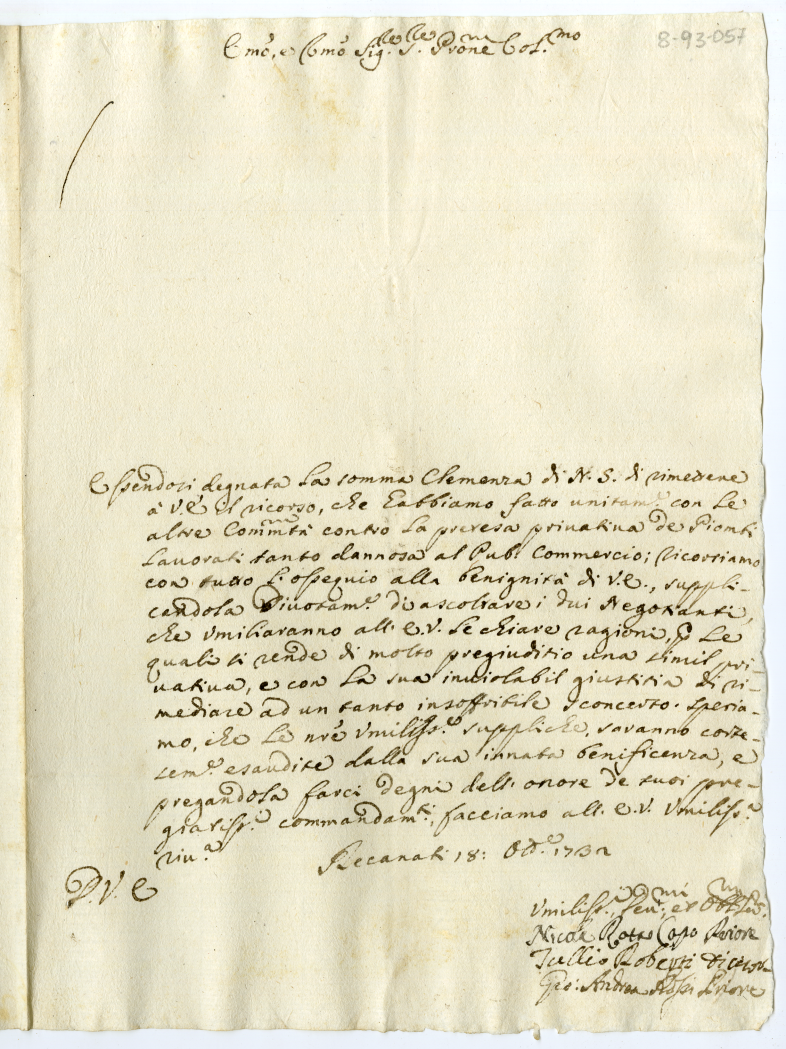 8-93-057
Emo, e Rmo Sig.re S.re Prone Col.mo
Essendosi degnata la somma Clemenza di N. S. di rimettere
à V.E. il ricorso, che habbiamo fatto unitam.e con le
altre Com̃tà contro la pretesa privativa de Piombi
lavorati tanto dannosa al Pub.º Commercio; ricorriamo
con tutto l'ossequio alla benignità di V.E., suppli-
candola divotam.e di ascoltare i dui Negotianti,
che umiliaranno all'E.V. le chiare ragioni, p le
quali si rende di molto pregiuditio una simil pri-
vativa, e con la sua inviolabil giustitia di ri-
mediare ad un tanto insoffribile sconcerto. Speria-
mo, che le nr̃e umiliss.e suppliche, saranno corte-
sem.e esaudite dalla sua innata benificenza, e
pregandola farci degni dell'onore de suoi pre-
giatiss.i commandam.ti, facciamo all'E.V. umiliss.a
riv.a
Recanati 18: Ott.e 1732
D. V. E
Umiliss.i, Dev.mi, et Obb.mi Ser.
Nicola Capo Priore
Tullio Roberti
Gio: Andrea Priore